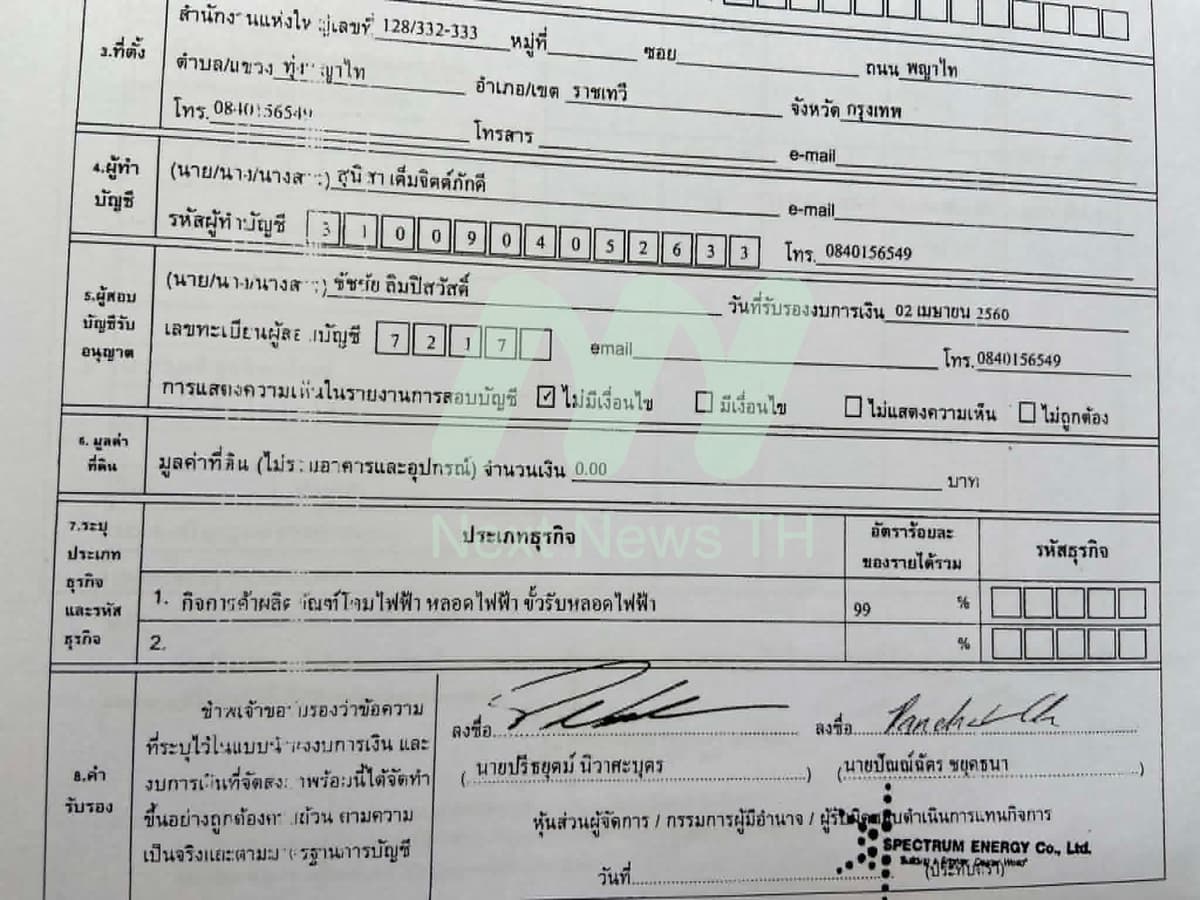 สำนักงานแห่งใหญ่เลขที่ 128/332-333 หมู่ที่ ซอย ถนน พญาไท
3.ที่ตั้ง
ตำบล/แขวง ทุ่งพญาไท อำเภอ/เขต ราชเทวี จังหวัด กรุงเทพ
โทร. 0840156549 โทรสาร e-mail
4.ผู้ทำ
บัญชี
(นาย/นาง/นางสาว) สุนิสา เต็มจิตต์ภักดี e-mail
รหัสผู้ทำบัญชี 3 1 0 0 9 0 4 0 5 2 6 3 3 โทร. 0840156549
5.ผู้สอบ
บัญชีรับ
อนุญาต
(นาย/นาง/นางสาว) ชัชชัย ลิมปิสวัสดิ์ วันที่รับรองงบการเงิน 02 เมษายน 2560
เลขทะเบียนผู้สอบบัญชี 7 2 1 7 email โทร. 0840156549
การแสดงความเห็นในรายงานการสอบบัญชี ☑ ไม่มีเงื่อนไข ☐ มีเงื่อนไข ☐ ไม่แสดงความเห็น ☐ ไม่ถูกต้อง
6. มูลค่า
ที่ดิน
มูลค่าที่ดิน (ไม่รวมอาคารและอุปกรณ์) จำนวนเงิน 0.00 บาท
Next News TH
7.ระบุ
ประเภท
ธุรกิจ
และรหัส
ธุรกิจ
ประเภทธุรกิจ
อัตราร้อยละ
ของรายได้รวม
รหัสธุรกิจ
1. กิจการค้าผลิตภัณฑ์โคมไฟฟ้า หลอดไฟฟ้า ขั้วรับหลอดไฟฟ้า 99 %
2. %
8.คำ
รับรอง
ข้าพเจ้าขอรับรองว่าข้อความ
ที่ระบุไว้ในแบบนำส่งงบการเงิน และ
งบการเงินที่จัดส่งมาพร้อมนี้ได้จัดทำ
ขึ้นอย่างถูกต้องครบถ้วน ตามความ
เป็นจริงและตามมาตรฐานการบัญชี
ลงชื่อ ลงชื่อ
(นายปรีธยุตม์ นิวาศะบุตร) (นายปัณณ์ฉัตร ชยุตธนา)
หุ้นส่วนผู้จัดการ / กรรมการผู้มีอำนาจ / ผู้รับผิดชอบดำเนินการแทนกิจการ
SPECTRUM ENERGY Co., Ltd.
วันที่ (ประทับตรา)